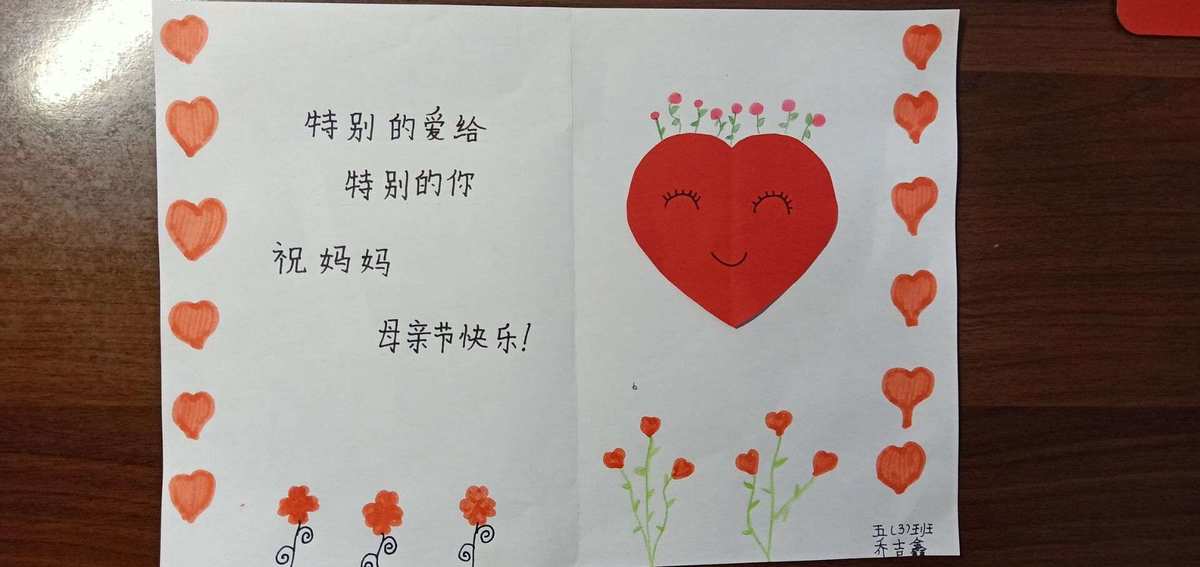 特别的爱给
特别的你
祝妈妈
母亲节快乐!
五(3)班
乔吉鑫